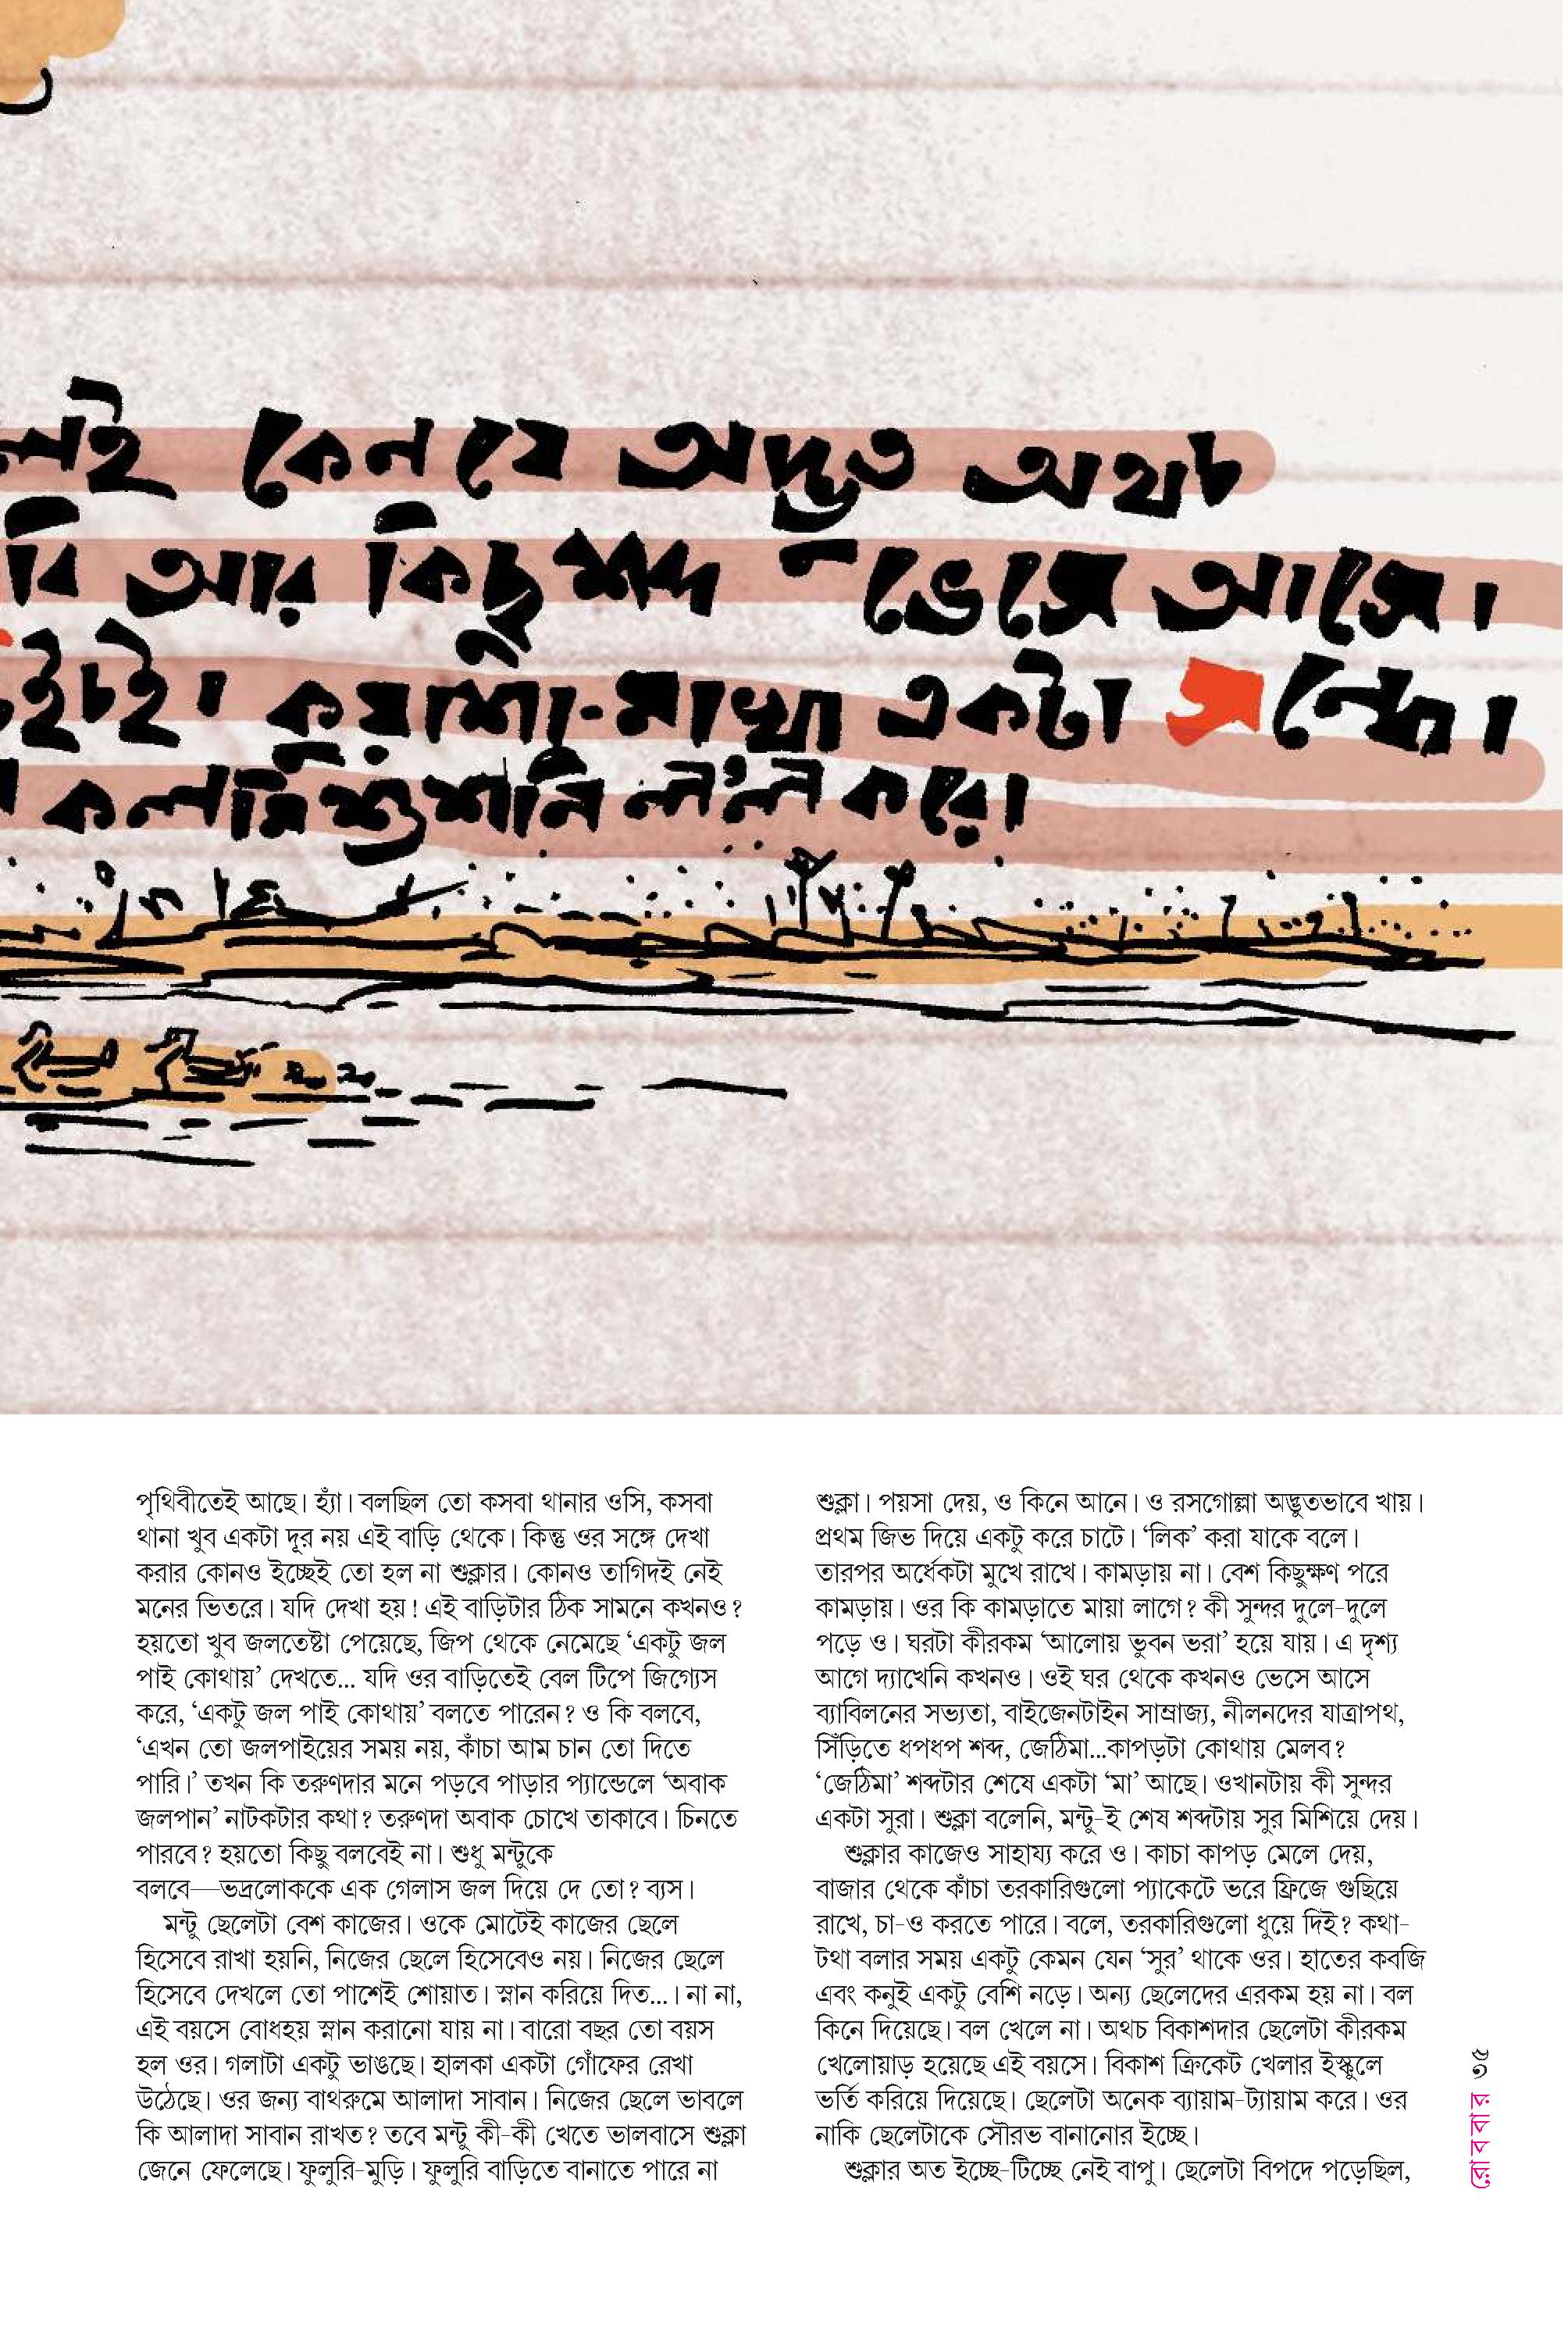 কেন যে অদ্ভুত অথচ
আর কিছু শব্দ ভেসে আসে।
কুয়াশা-মাখা একটা সন্ধে।
কলমি শুশনি লংল করে।
পৃথিবীতেই আছে। হ্যাঁ। বলছিল তো কসবা থানার ওসি, কসবা
থানা খুব একটা দূর নয় এই বাড়ি থেকে। কিন্তু ওর সঙ্গে দেখা
করার কোনও ইচ্ছেই তো হল না শুক্লার। কোনও তাগিদই নেই
মনের ভিতরে। যদি দেখা হয়! এই বাড়িটার ঠিক সামনে কখনও?
হয়তো খুব জলতেষ্টা পেয়েছে, জিপ থেকে নেমেছে ‘একটু জল
পাই কোথায়’ দেখতে... যদি ওর বাড়িতেই বেল টিপে জিগ্যেস
করে, ‘একটু জল পাই কোথায়’ বলতে পারেন? ও কি বলবে,
‘এখন তো জলপাইয়ের সময় নয়, কাঁচা আম চান তো দিতে
পারি।’ তখন কি তরুণদার মনে পড়বে পাড়ার প্যান্ডেলে ‘অবাক
জলপান’ নাটকটার কথা? তরুণদা অবাক চোখে তাকাবে। চিনতে
পারবে? হয়তো কিছু বলবেই না। শুধু মন্টুকে
বলবে—ভদ্রলোককে এক গেলাস জল দিয়ে দে তো? ব্যস।
মন্টু ছেলেটা বেশ কাজের। ওকে মোটেই কাজের ছেলে
হিসেবে রাখা হয়নি, নিজের ছেলে হিসেবেও নয়। নিজের ছেলে
হিসেবে দেখলে তো পাশেই শোয়াত। স্নান করিয়ে দিত...। না না,
এই বয়সে বোধহয় স্নান করানো যায় না। বারো বছর তো বয়স
হল ওর। গলাটা একটু ভাঙছে। হালকা একটা গোঁফের রেখা
উঠেছে। ওর জন্য বাথরুমে আলাদা সাবান। নিজের ছেলে ভাবলে
কি আলাদা সাবান রাখত? তবে মন্টু কী-কী খেতে ভালবাসে শুক্লা
জেনে ফেলেছে। ফুলুরি-মুড়ি। ফুলুরি বাড়িতে বানাতে পারে না
শুক্লা। পয়সা দেয়, ও কিনে আনে। ও রসগোল্লা অদ্ভুতভাবে খায়।
প্রথম জিভ দিয়ে একটু করে চাটে। ‘লিক’ করা যাকে বলে।
তারপর অর্ধেকটা মুখে রাখে। কামড়ায় না। বেশ কিছুক্ষণ পরে
কামড়ায়। ওর কি কামড়াতে মায়া লাগে? কী সুন্দর দুলে-দুলে
পড়ে ও। ঘরটা কীরকম ‘আলোয় ভুবন ভরা’ হয়ে যায়। এ দৃশ্য
আগে দ্যাখেনি কখনও। ওই ঘর থেকে কখনও ভেসে আসে
ব্যাবিলনের সভ্যতা, বাইজেনটাইন সাম্রাজ্য, নীলনদের যাত্রাপথ,
সিঁড়িতে ধপধপ শব্দ, জেঠিমা...কাপড়টা কোথায় মেলব?
‘জেঠিমা’ শব্দটার শেষে একটা ‘মা’ আছে। ওখানটায় কী সুন্দর
একটা সুরা। শুক্লা বলেনি, মন্টু-ই শেষ শব্দটায় সুর মিশিয়ে দেয়।
শুক্লার কাজেও সাহায্য করে ও। কাচা কাপড় মেলে দেয়,
বাজার থেকে কাঁচা তরকারিগুলো প্যাকেটে ভরে ফ্রিজে গুছিয়ে
রাখে, চা-ও করতে পারে। বলে, তরকারিগুলো ধুয়ে দিই? কথা-
টথা বলার সময় একটু কেমন যেন ‘সুর’ থাকে ওর। হাতের কবজি
এবং কনুই একটু বেশি নড়ে। অন্য ছেলেদের এরকম হয় না। বল
কিনে দিয়েছে। বল খেলে না। অথচ বিকাশদার ছেলেটা কীরকম
খেলোয়াড় হয়েছে এই বয়সে। বিকাশ ক্রিকেট খেলার ইস্কুলে
ভর্তি করিয়ে দিয়েছে। ছেলেটা অনেক ব্যায়াম-ট্যায়াম করে। ওর
নাকি ছেলেটাকে সৌরভ বানানোর ইচ্ছে।
শুক্লার অত ইচ্ছে-টিচ্ছে নেই বাপু। ছেলেটা বিপদে পড়েছিল,
রোববার ৩৫